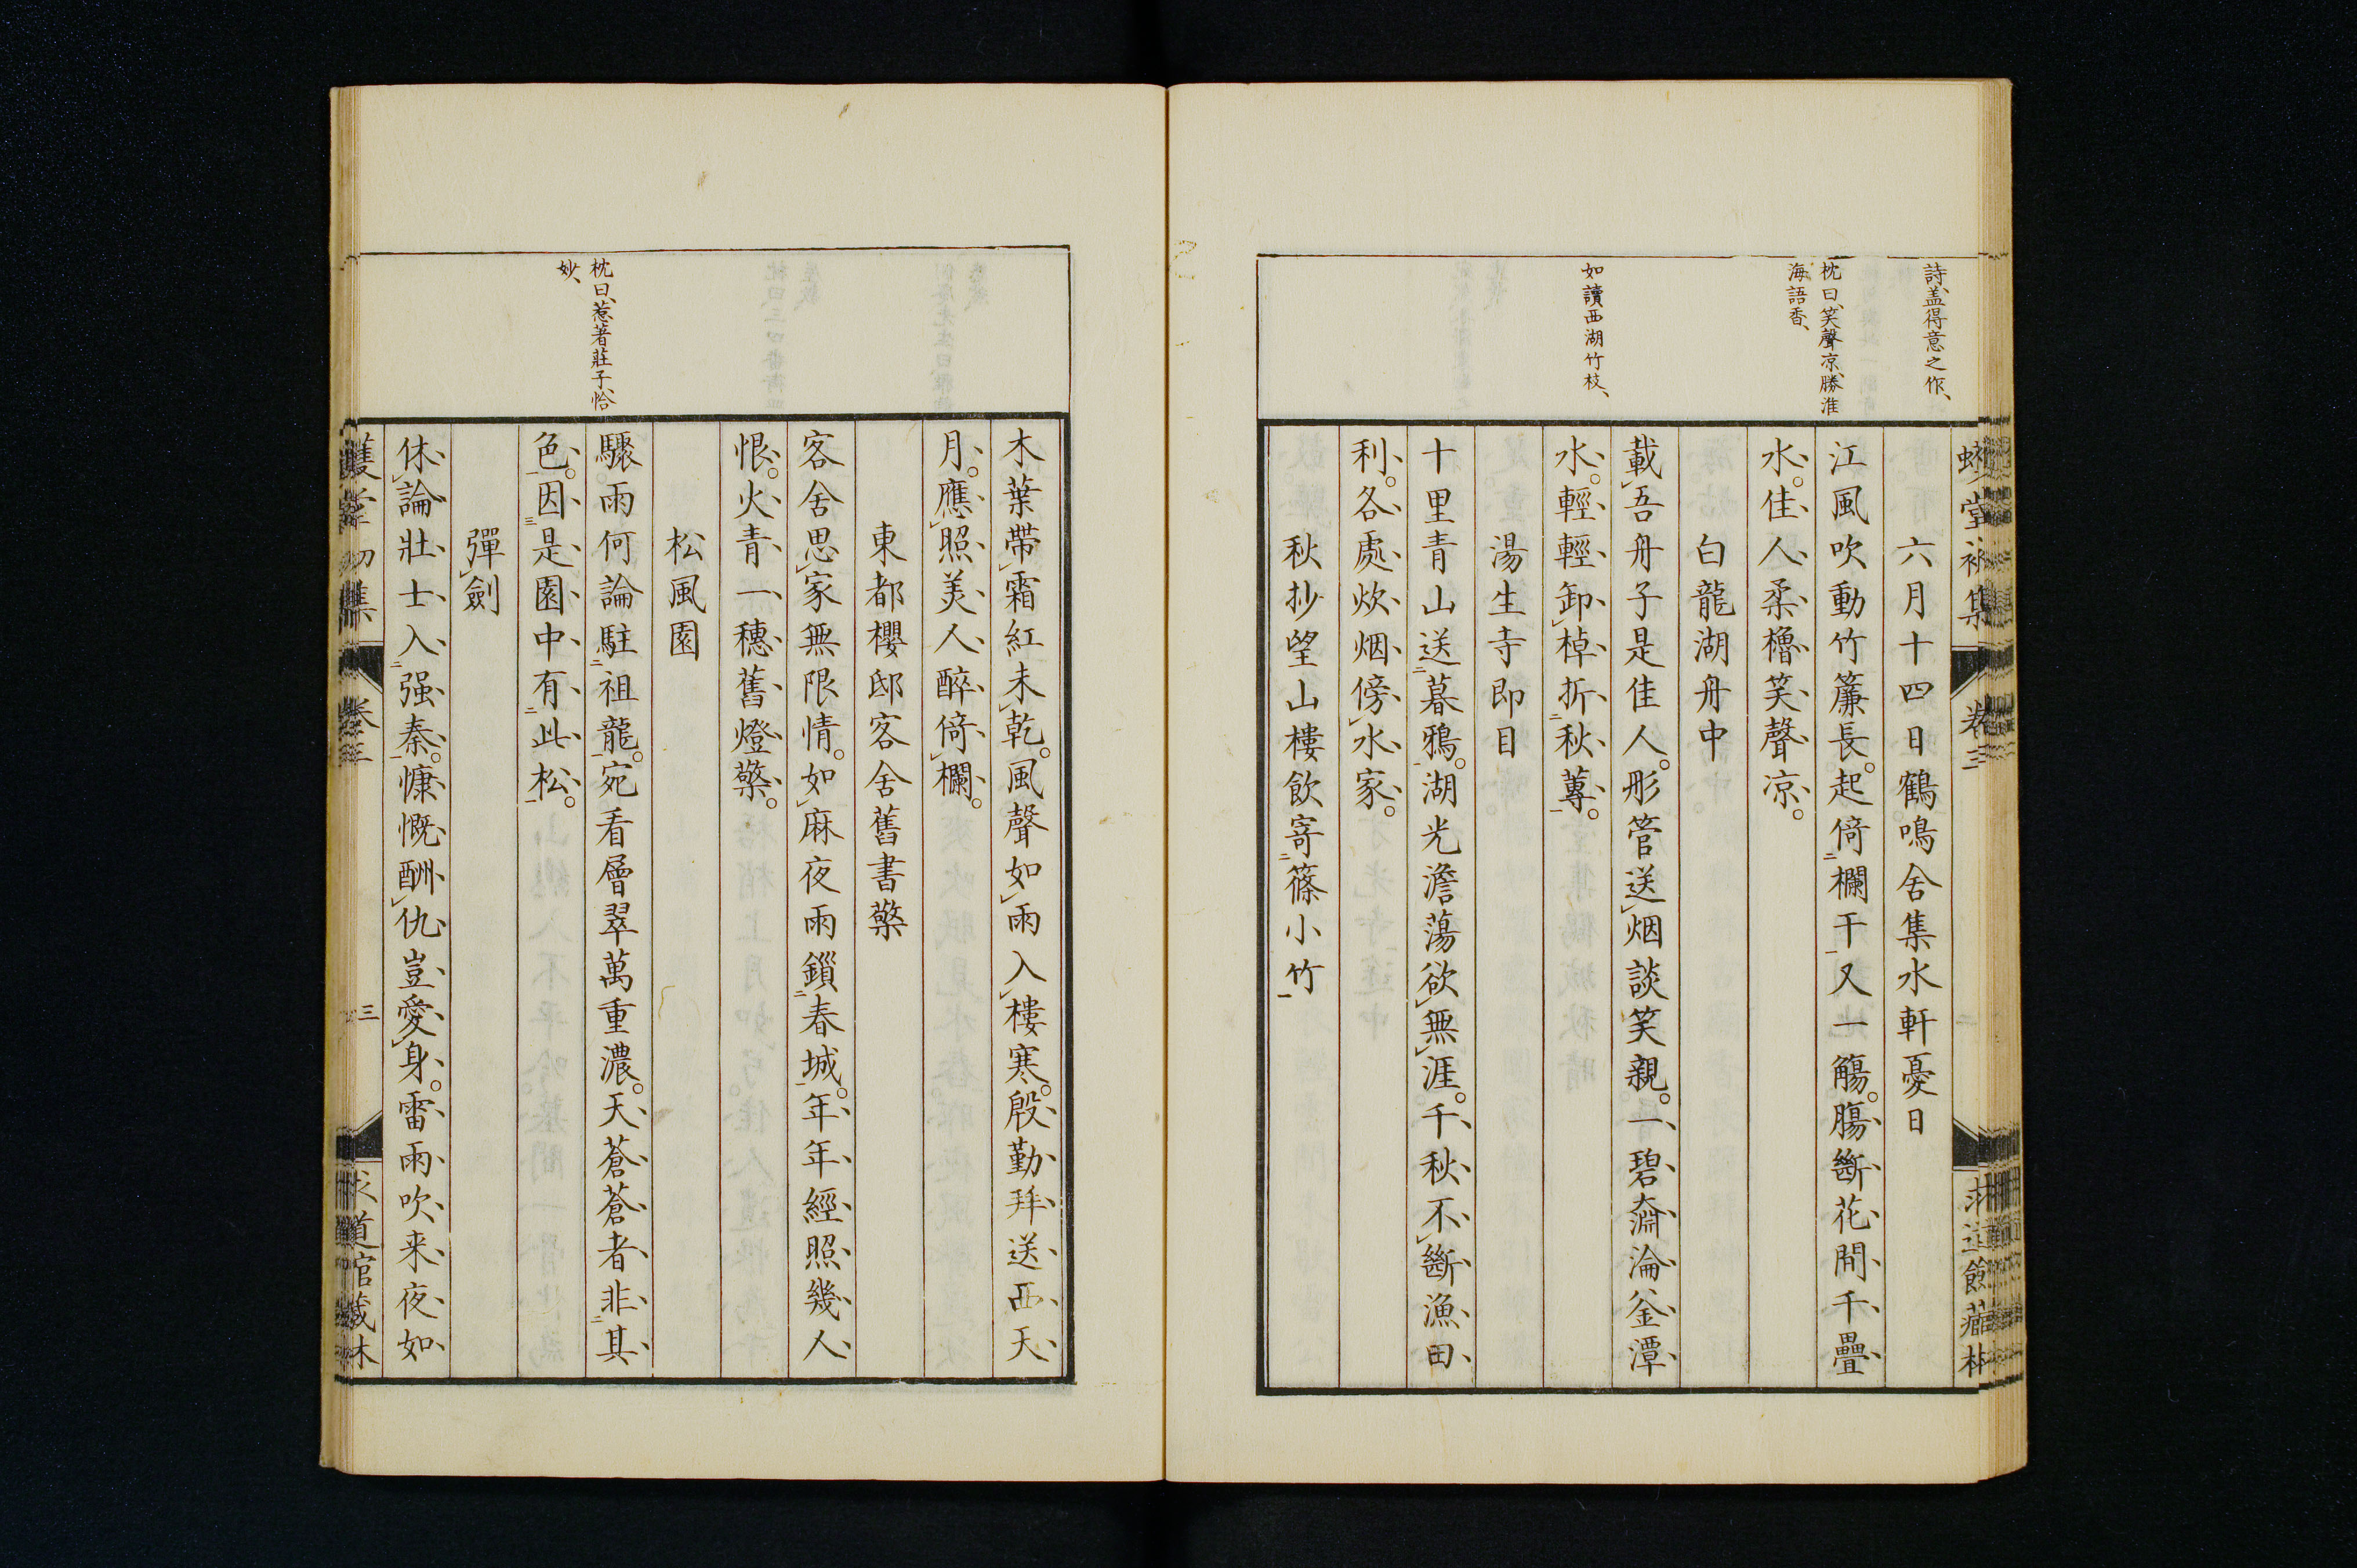 詩、蓋得意之作、
枕曰、笑聲凉、勝淮
海語香、
如讀西湖竹枝、
六月十四日鶴鳴舍集水軒憂日
江風吹動竹簾長。起倚二欄干一又一觴。腸斷花間千疊
水。佳人柔櫓笑聲凉。
白龍湖舟中
載レ吾舟子是佳人。彤管送レ烟談笑親。一碧奫淪釜潭
水。輕輕卸レ棹折二秋蓴一。
湯生寺即目
十里青山送二暮鴉一。湖光澹蕩欲レ無レ涯。千秋不レ斷漁田
利。各處炊烟傍レ水家。
秋抄望山樓飲寄二篠小竹一
卷三
枕曰、惹著莊子、恰
妙、
木葉帶レ霜紅未レ乾。風聲如レ雨入レ樓寒。殷勤拜送西天
月。應レ照美人醉倚レ欄。
東都櫻邸客舍舊書檠
客舍思レ家無限情。如レ麻夜雨鎖二春城一。年年經照幾人
恨。火青一穗舊燈檠。
松風園
驟雨何論駐二祖龍一。宛看層翠萬重濃。天蒼蒼者非二其
色一。因三是園中有二此松一。
彈レ劍
休レ論壯士入二强秦一。慷慨酬レ仇豈愛レ身。雷雨吹来夜如
卷三
三